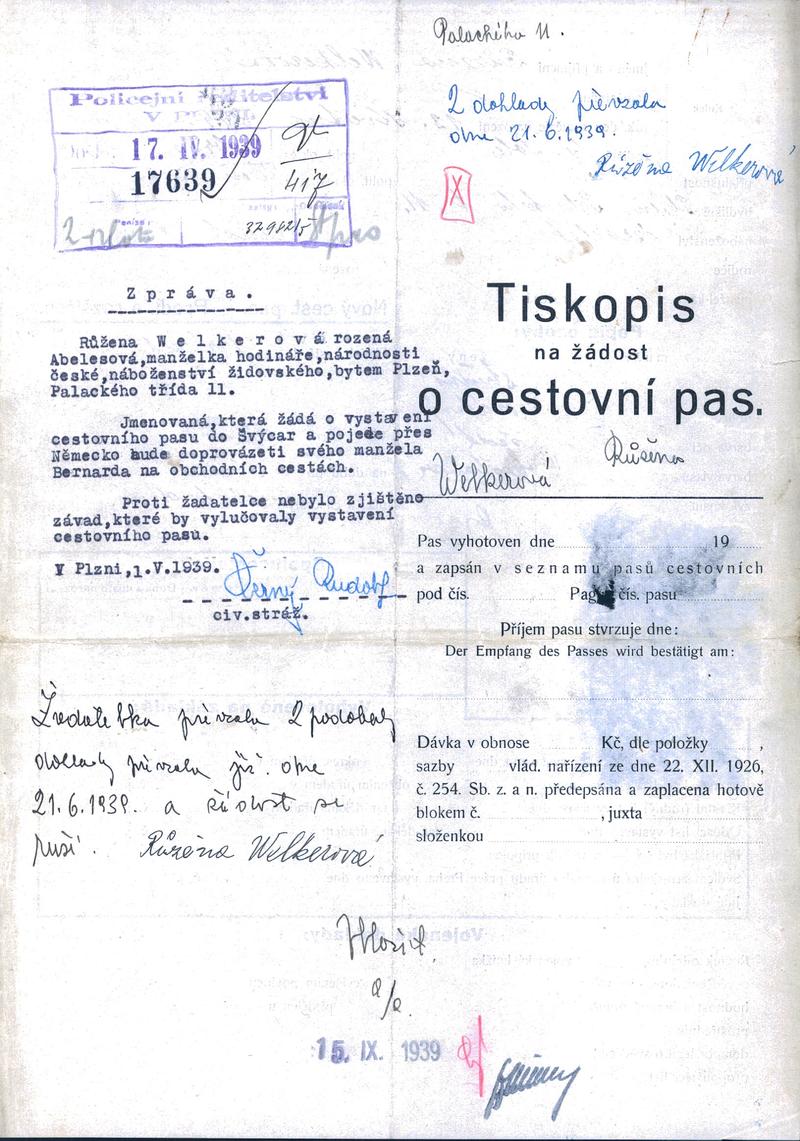 Palackého 11.
2 doklady převzala
dne 21.6.1939.
Růžena Welkerová
Policejní ředitelství
V PLZNI
17. IV. 1939
17639
417
2 přílohy
32982/5
Zpráva.
Růžena Welkerová rozená
Abelesová,manželka hodináře,národnosti
české,náboženství židovského,bytem Plzeň,
Palackého třída 11.
Jmenovaná,která žádá o vystavení
cestovního pasu do Švýcar a pojede přes
Německo bude doprovázeti svého manžela
Bernarda na obchodních cestách.
Proti žadatelce nebylo zjištěno
závad,které by vylučovaly vystavení
cestovního pasu.
V Plzni,1.V.1939.
Černý Rudolf
civ.stráž.
Tiskopis
na žádost
o cestovní pas.
Welkerová Růžena
Pas vyhotoven dne 19
a zapsán v seznamu pasů cestovních
pod čís. Pag. čís. pasu
Příjem pasu stvrzuje dne:
Der Empfang des Passes wird bestätigt am:
Dávka v obnose Kč, dle položky ,
sazby vlád. nařízení ze dne 22. XII. 1926,
č. 254. Sb. z. a n. předepsána a zaplacena hotově
blokem č. , juxta
složenkou
Žadatelka převzala 2 podoby
doklady převzala již dne
21.6.1939. a žádost se
ruší. Růžena Welkerová
a/a.
15. IX. 1939